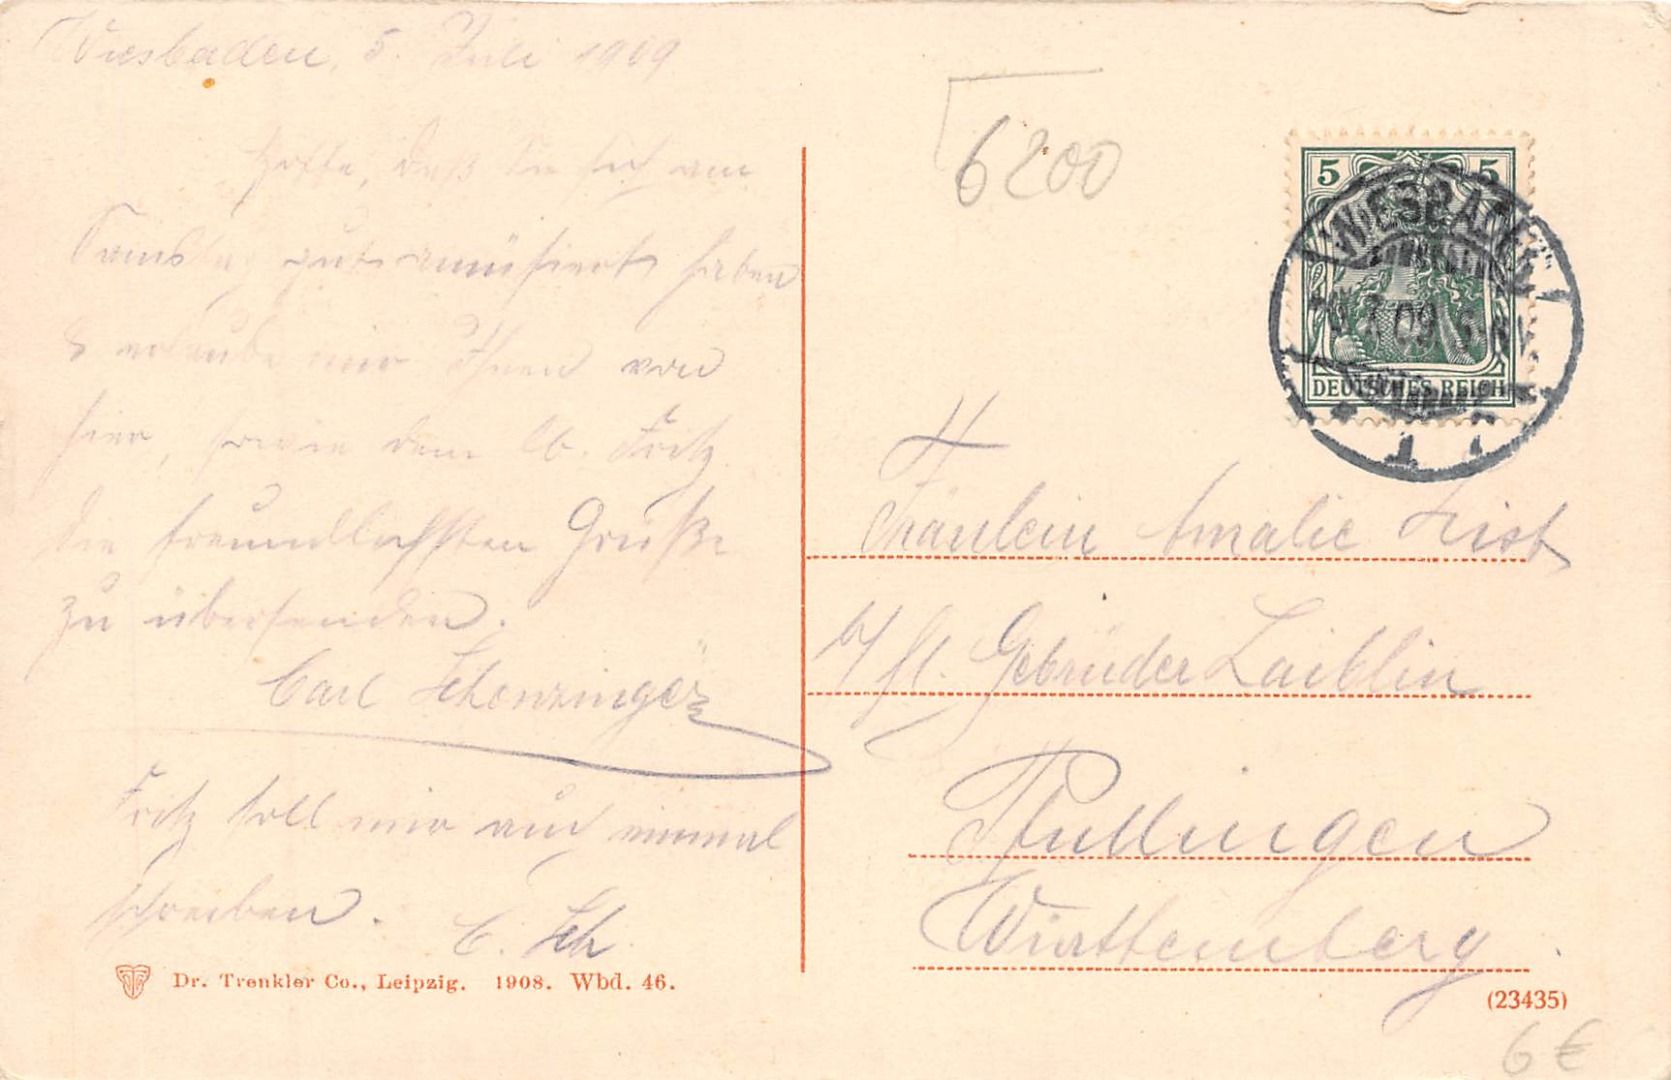 Wiesbaden, 5. Juli 1909
Hoffe, daß Sie sich am
Samstag gut amüsiert haben
& erlaube mir Ihnen von
hier, sowie dem lb. Fritz
die freundlichsten Grüße
zu übersenden.
Carl Schenzinger
Fritz soll mir auch einmal
schreiben. C. Sch
Dr. Trenkler Co., Leipzig. 1908. Wbd. 46.
6200
5 5
WIESBADEN
7.09
DEUTSCHES REICH
1
Fräulein Amalie List
Gebrüder Laiblin
Pfullingen
Württemberg
(23435)
6 €